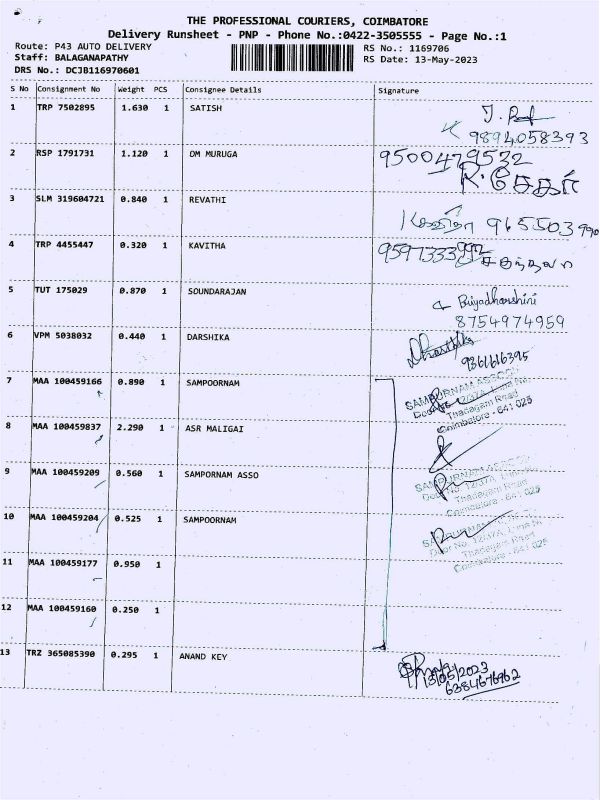 THE PROFESSIONAL COURIERS, COIMBATORE
Delivery Runsheet - PNP - Phone No.:0422-3505555 - Page No.:1
Route: P43 AUTO DELIVERY RS No.: 1169706
Staff: BALAGANAPATHY RS Date: 13-May-2023
DRS No.: DCJB116970601
S No Consignment No Weight PCS Consignee Details Signature
1 TRP 7502895 1.630 1 SATISH
9894058393
2 RSP 1791731 1.120 1 OM MURUGA 9500479532
R. சேகர்
3 SLM 319604721 0.840 1 REVATHI
965503990
4 TRP 4455447 0.320 1 KAVITHA
5 TUT 175029 0.870 1 SOUNDARAJAN Priyadharshini
8754974959
6 VPM 5038032 0.440 1 DARSHIKA
9361616395
7 MAA 100459166 0.890 1 SAMPOORNAM SAMPURNAM ASSOC
Door No. 12/37A, Luna Na
Thadagam Road
Coimbatore - 641 025
8 MAA 100459837 2.290 1 ASR MALIGAI
9 MAA 100459209 0.560 1 SAMPORNAM ASSO SAMPURNAM ASSOC
Door No. 12/37A, Luna
Thadagam Road
Coimbatore - 641 025
10 MAA 100459204 0.525 1 SAMPOORNAM
Door No. 12/37A, Luna Na
Thadagam Road
Coimbatore - 641 025
11 MAA 100459177 0.950 1
12 MAA 100459160 0.250 1
13 TRZ 365085390 0.295 1 ANAND KEY
13/05/2023
6384676962